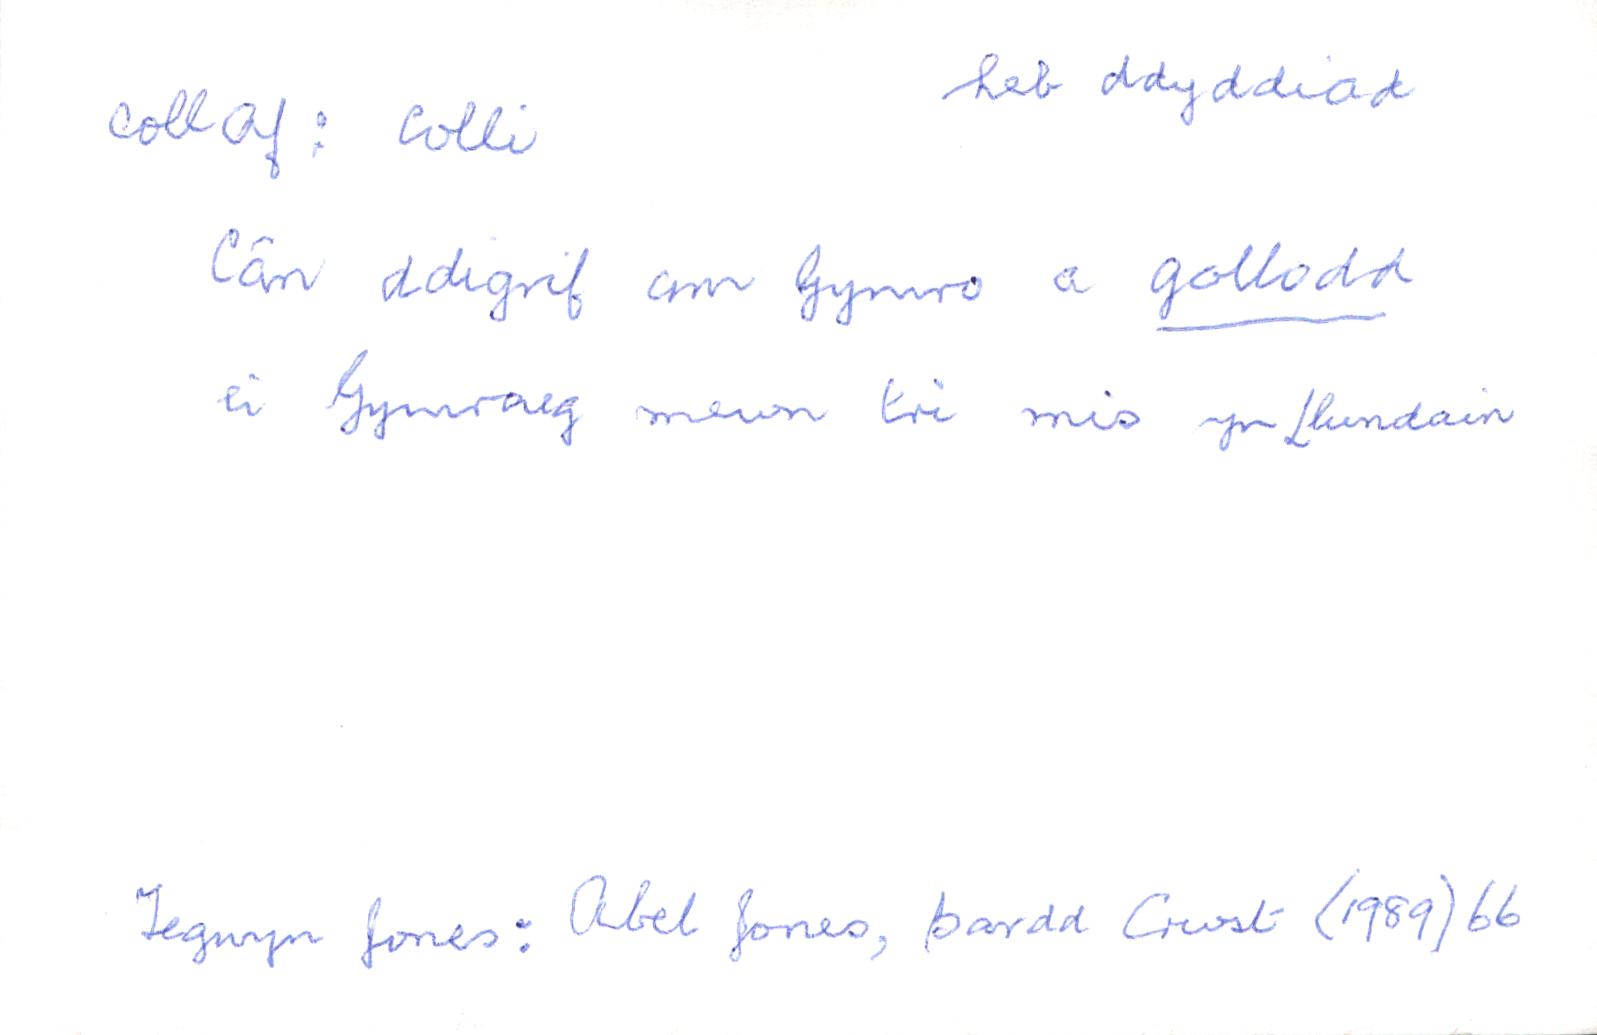 heb ddyddiad
collaf: colli
Cân ddigrif am Gymro a gollodd
ei Gymraeg mewn tri mis yn Llundain
Tegwyn Jones: Abel Jones, bardd Crwst (1989) 66